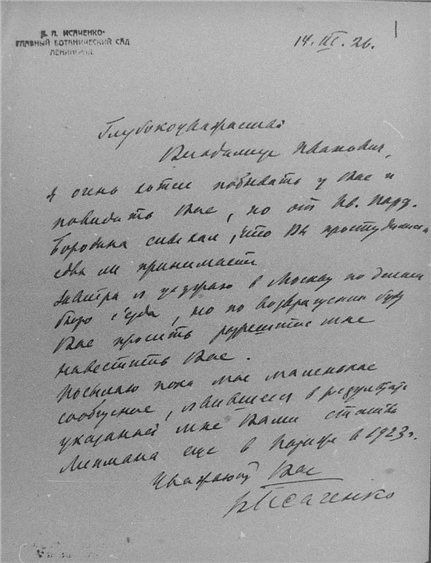 Б. Л. ИСАЧЕНКО
ГЛАВНЫЙ БОТАНИЧЕСКИЙ САД
ЛЕНИНГРАД
14. III. 26.
Глубокоуважаемый
Владимир Иванович,
я очень хотел побывать у Вас и
повидать Вас, но от Ив. Парф.
Бородина слыхал, что Вы простудились и
едва ли принимаете.
Завтра я уезжаю в Москву по делам
бюро съезда, но по возвращении буду
Вас просить разрешить мне
навестить Вас.
Посылаю пока мое маленькое
сообщение, явившееся в результате
указанной мне Вами статьи
еще в Париже в 1923 г.
Уважающий Вас
Б Исаченко